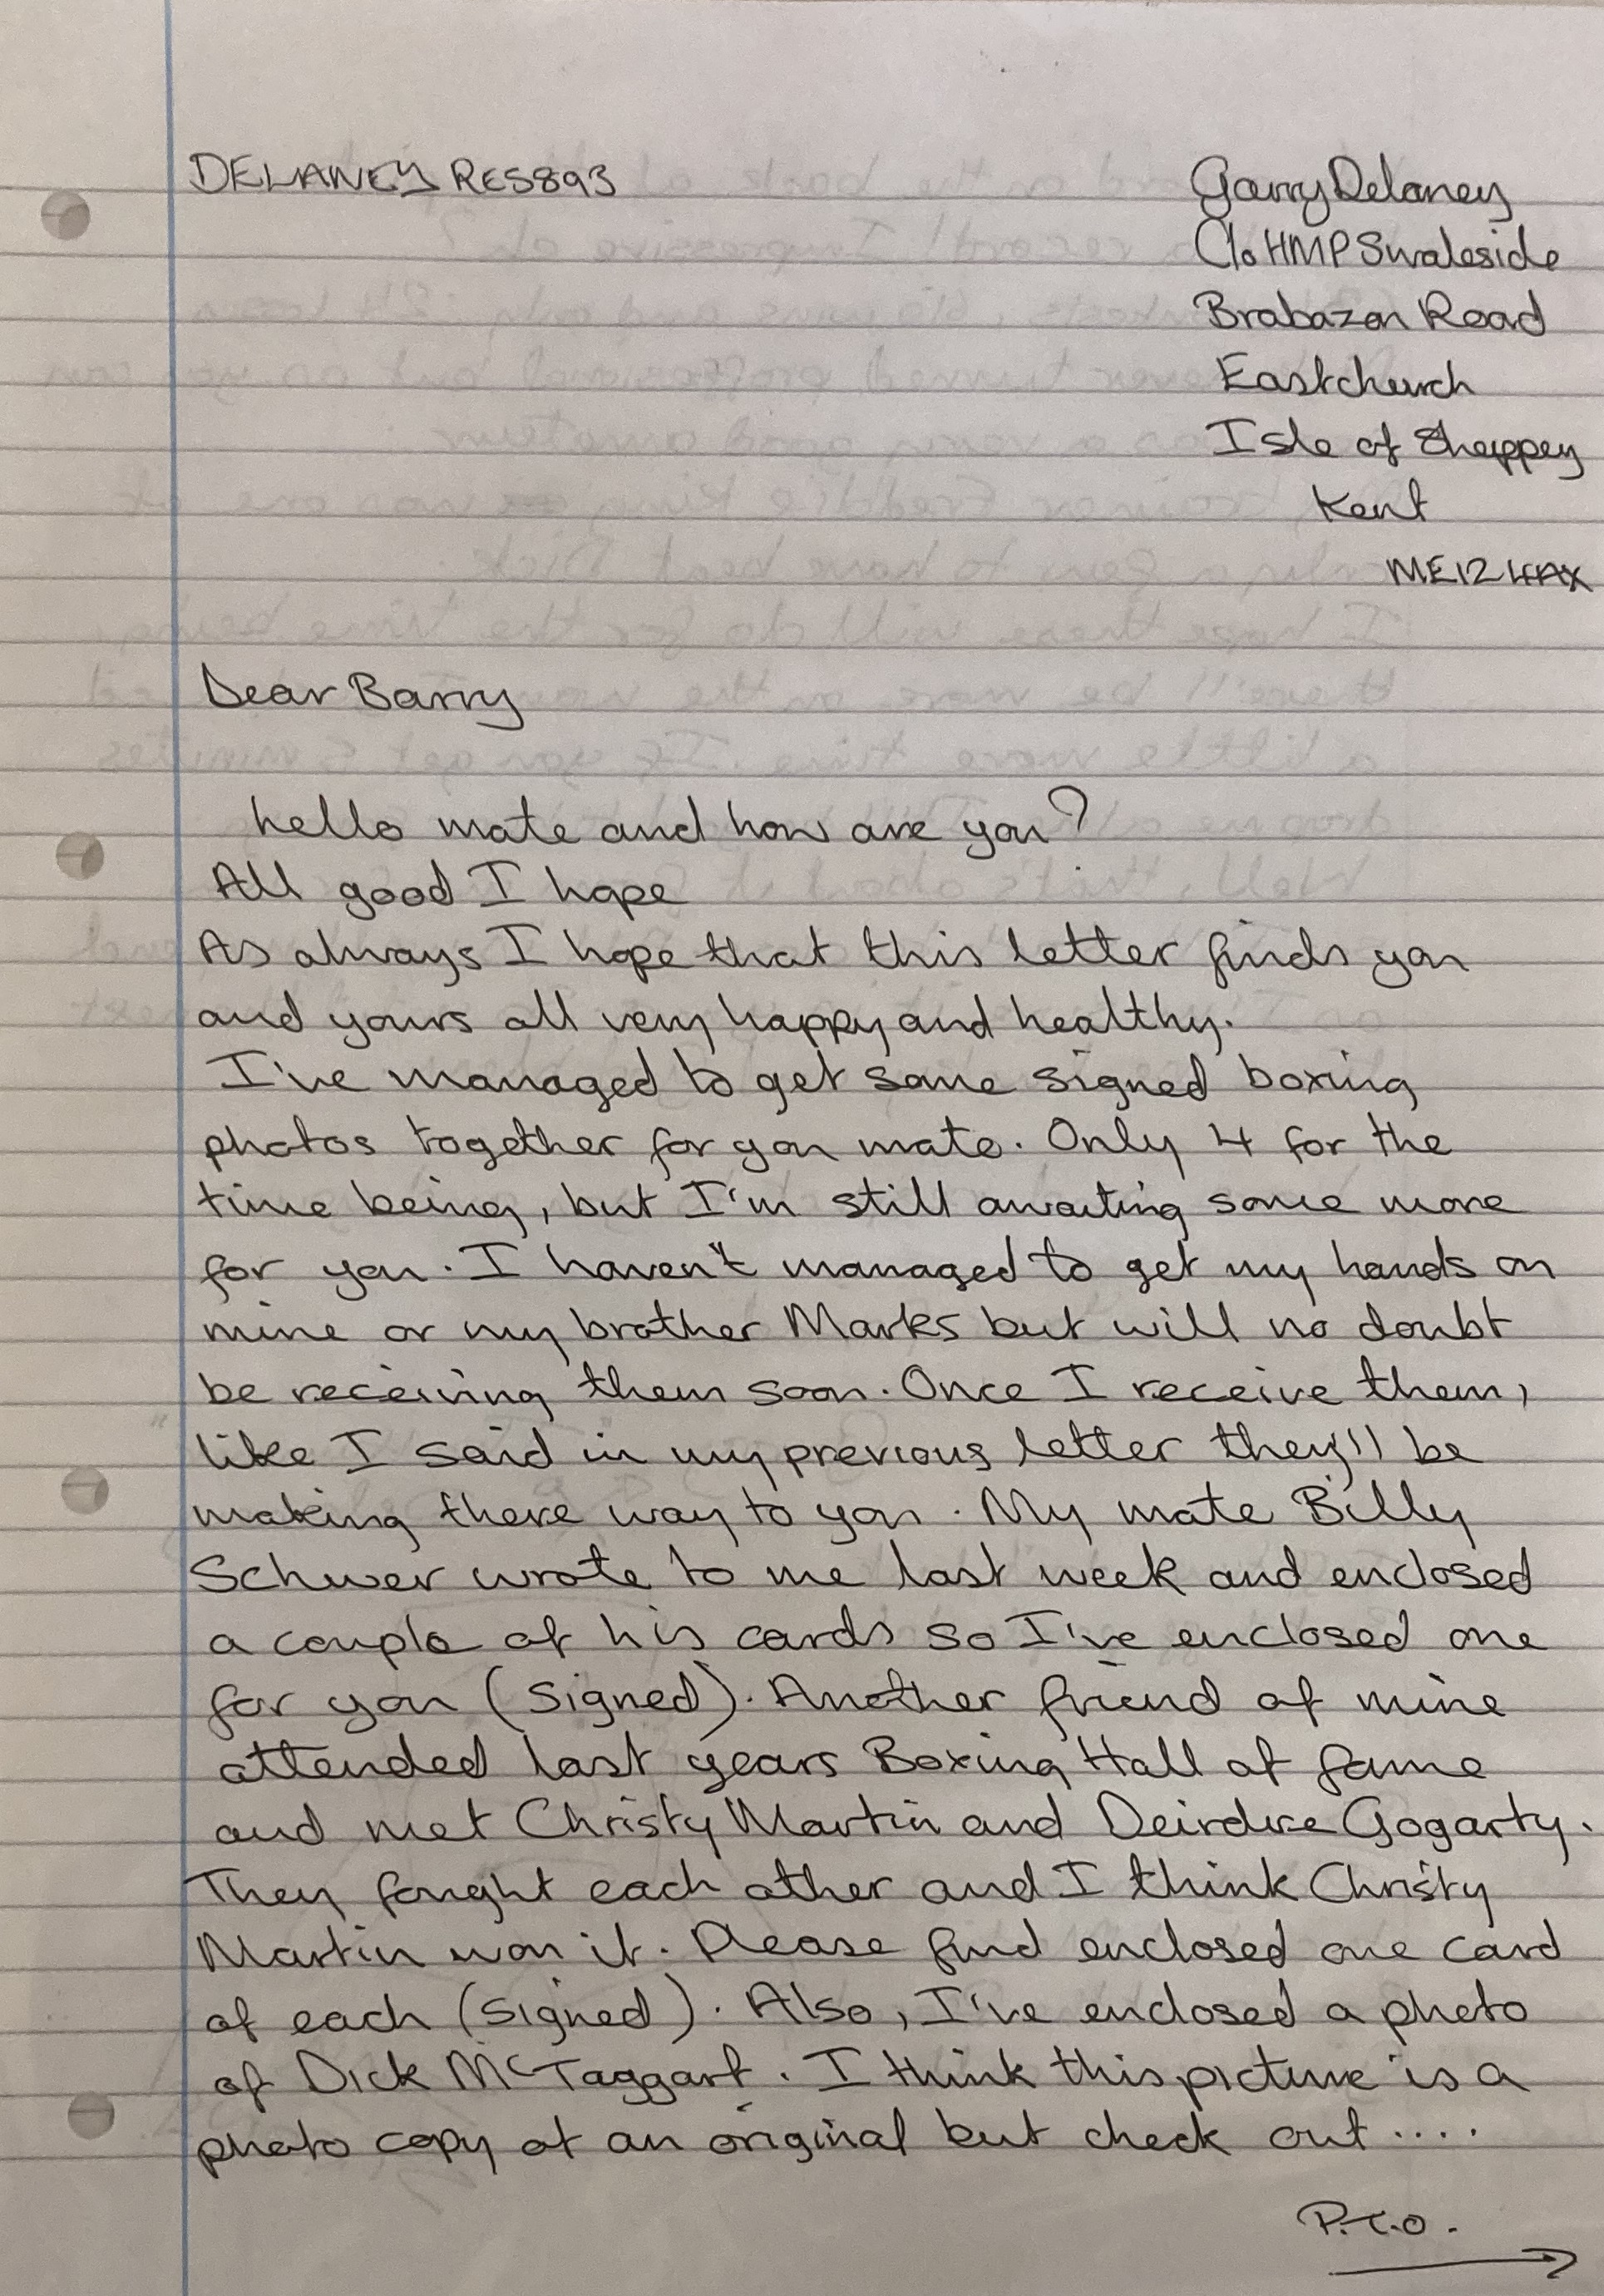 DELANEY RES893
Garry Delaney
C/o HMP Swaleside
Brabazon Road
Eastchurch
Isle of Sheppey
Kent
ME12 4AX
Dear Barry
hello mate and how are you?
All good I hope
As always I hope that this letter finds you
and yours all very happy and healthy.
I've managed to get some signed boxing
photos together for you mate. Only 4 for the
time being, but I'm still awaiting some more
for you. I haven't managed to get my hands on
mine or my brother Marks but will no doubt
be receiving them soon. Once I receive them,
like I said in my previous letter they'll be
making there way to you. My mate Billy
Schwer wrote to me last week and enclosed
a couple of his cards so I've enclosed one
for you (signed). Another friend of mine
attended last years Boxing Hall of fame
and met Christy Martin and Deirdre Gogarty.
They fought each other and I think Christy
Martin won it. Please find enclosed one card
of each (signed). Also, I've enclosed a photo
of Dick McTaggart. I think this picture is a
photo copy of an original but check out ....
P.T.O.